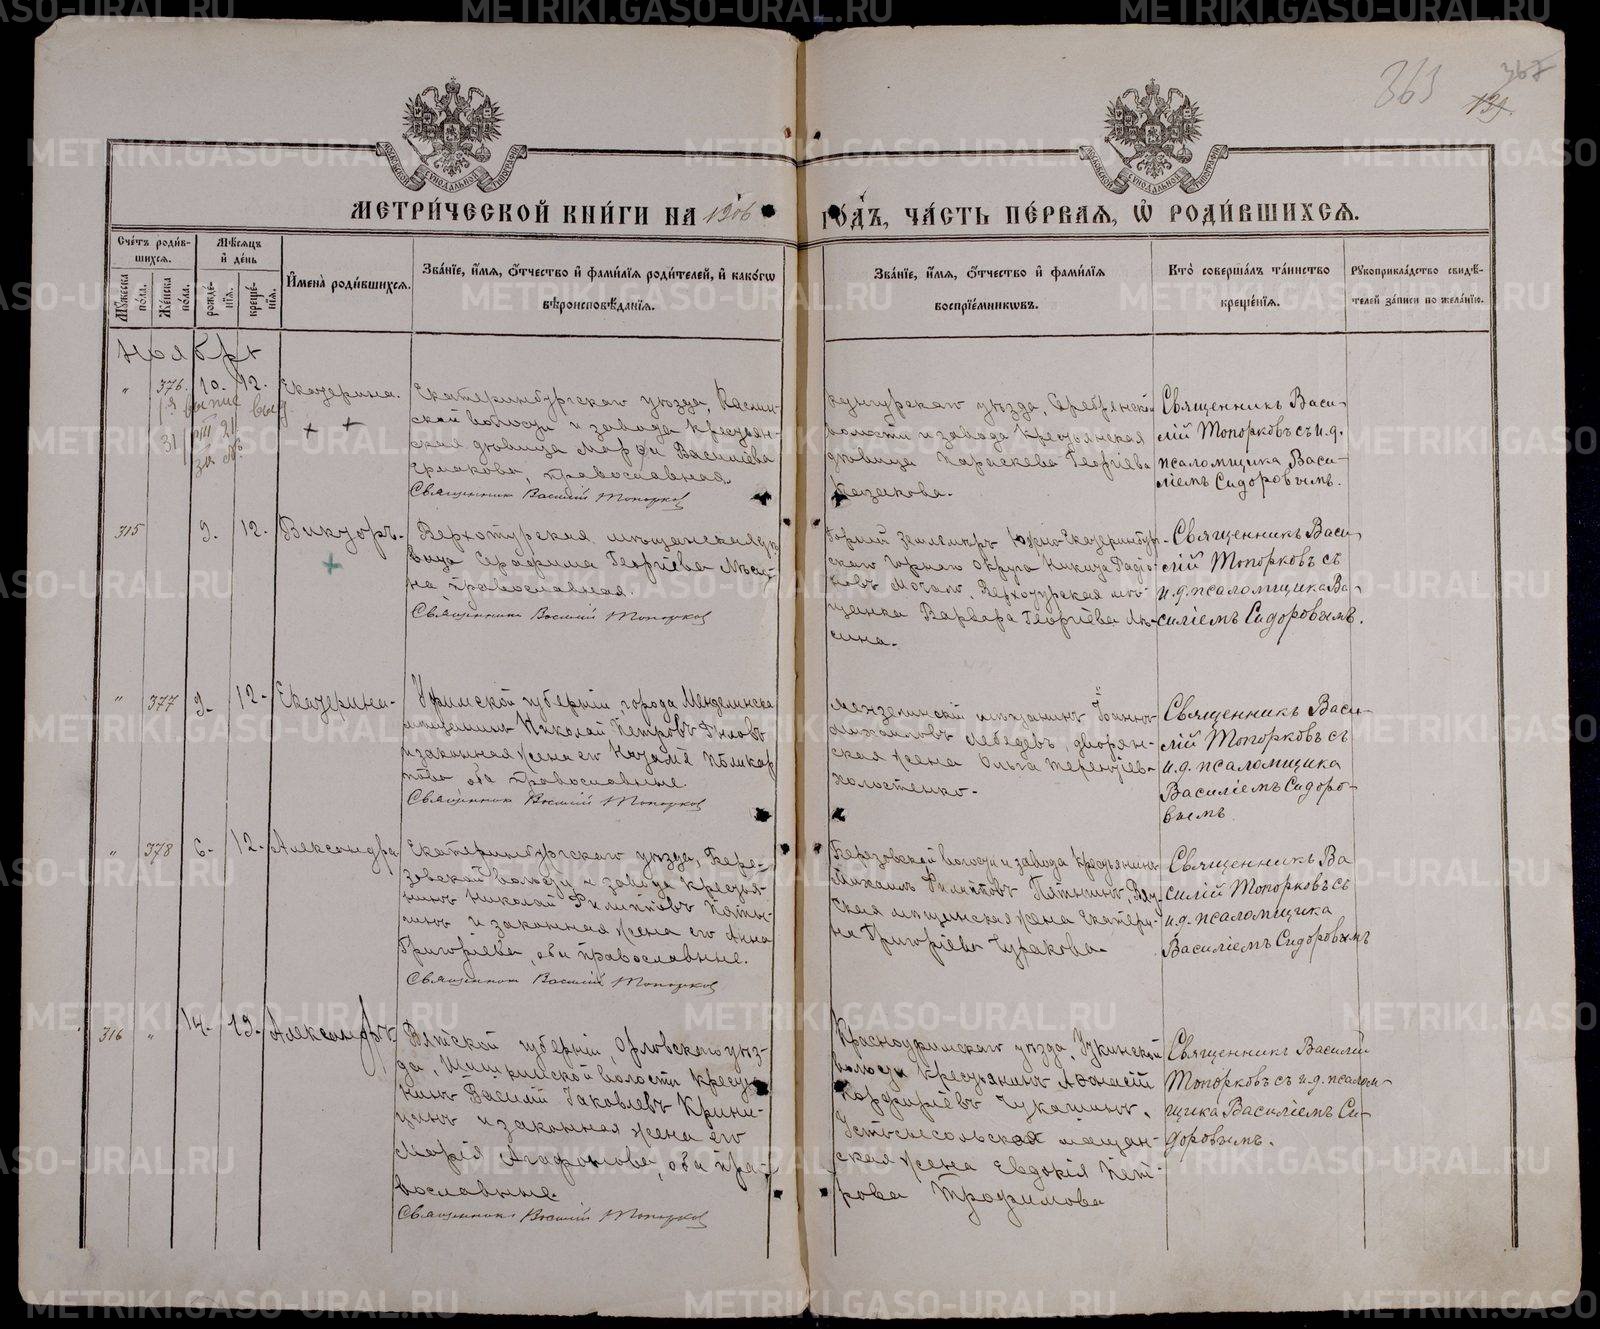 363
МЕТРИ́ЧЕСКОЙ КНИ́ГИ НА 1906 ГО́ДЪ, ЧА́СТЬ ПЕ́РВАЯ, Ѡ҆ РОДИ́ВШИХСЯ.
Сче́тъ роди́в-
шихся.
Мꙋ́жеска по́ла.
Же́нска по́ла.
Мѣ́сяцъ
и҆ де́нь
рожде́-
нїя.
креще́-
нїя.
И҆мена̀ роди́вшихся.
Зва́нїе, и҆́мя, ѻ҆́тчество и҆ фами́лїя роди́телей, и҆ како́гѡ
вѣроисповѣ́данїя.
Зва́нїе, и҆́мя, ѻ҆́тчество и҆ фами́лїя
воспрїе́мникѡвъ.
Кто̀ соверша́лъ та́инство
креще́нїя.
Рꙋкоприкла́дство свидѣ́-
телей за́писи по жела́нїю.
Ноябрь
" 376. 10. 12. Екатерина.
Екатеринбургскаго уѣзда, Каслин-
ской волости и завода крестьян-
ская дѣвица Марфа Василіева
Ермакова, православная.
Священникъ Василій Топорковъ
Кунгурскаго уѣзда, Серебрянской
волости и завода крестьянская
дѣвица Параскева Георгіева
Казакова.
Священникъ Васи-
лій Топорковъ съ и.д.
псаломщика Васи-
ліемъ Сидоровымъ.
315 9. 12. Викторъ.
Верхотурская мѣщанская дѣ-
вица Серафима Георгіева Лѣси-
на православная.
Священникъ Василій Топорковъ
Горный землемѣръ Южно-Екатеринбург-
скаго Горнаго Округа Никита Радіо-
новъ, Верхотурская мѣ-
щанка Варвара Георгіева Лѣ-
сина.
Священникъ Васи-
лій Топорковъ съ
и.д. псаломщика Ва-
силіемъ Сидоровымъ.
" 377 9. 12. Екатерина
Уфимской губерніи, города Мензелинска
мѣщанинъ Николай Петровъ
и законная жена его Поликар-
пова оба православные.
Священникъ Василій Топорковъ
Мензелинскій мѣщанинъ Іоаннъ
Михаиловъ Лебедевъ, дворян-
ская жена Ольга Терентіева
Холостенко.
Священникъ Васи-
лій Топорковъ съ
и.д. псаломщика
Василіемъ Сидоро-
вымъ
" 378 6. 12. Александра
Екатеринбургскаго уѣзда, Бере-
зовской волости и завода крестья-
нинъ Николай Филипповъ Пяты-
гинъ и законная жена его Анна
Григоріева, оба православные.
Священникъ Василій Топорковъ
Березовской волости и завода крестьянинъ
Михаилъ Филипповъ Пятыгинъ, Вят-
ская мѣщанская жена Екатери-
на Григоріева Чуракова.
Священникъ Ва
силій Топорковъ съ
и.д. псаломщика
Василіемъ Сидоровымъ
316 " 14. 19. Александръ.
Вятской губерніи, Орловскаго уѣз-
да, волости крестья-
нинъ Василій Іаковлевъ Крини-
цинъ и законная жена его
Марія Агафонова, оба пра-
вославные.
Священникъ Василій Топорковъ
Красноуфимскаго уѣзда, волости крестьянинъ Афанасій
Порфиріевъ,
Устьсысольская мѣщан-
ская жена Евдокія Пет-
рова Трофимова
Священникъ Василій
Топорковъ съ и.д. псалом-
щика Василіемъ Си-
доровымъ.
METRIKI.GASO-URAL.RU